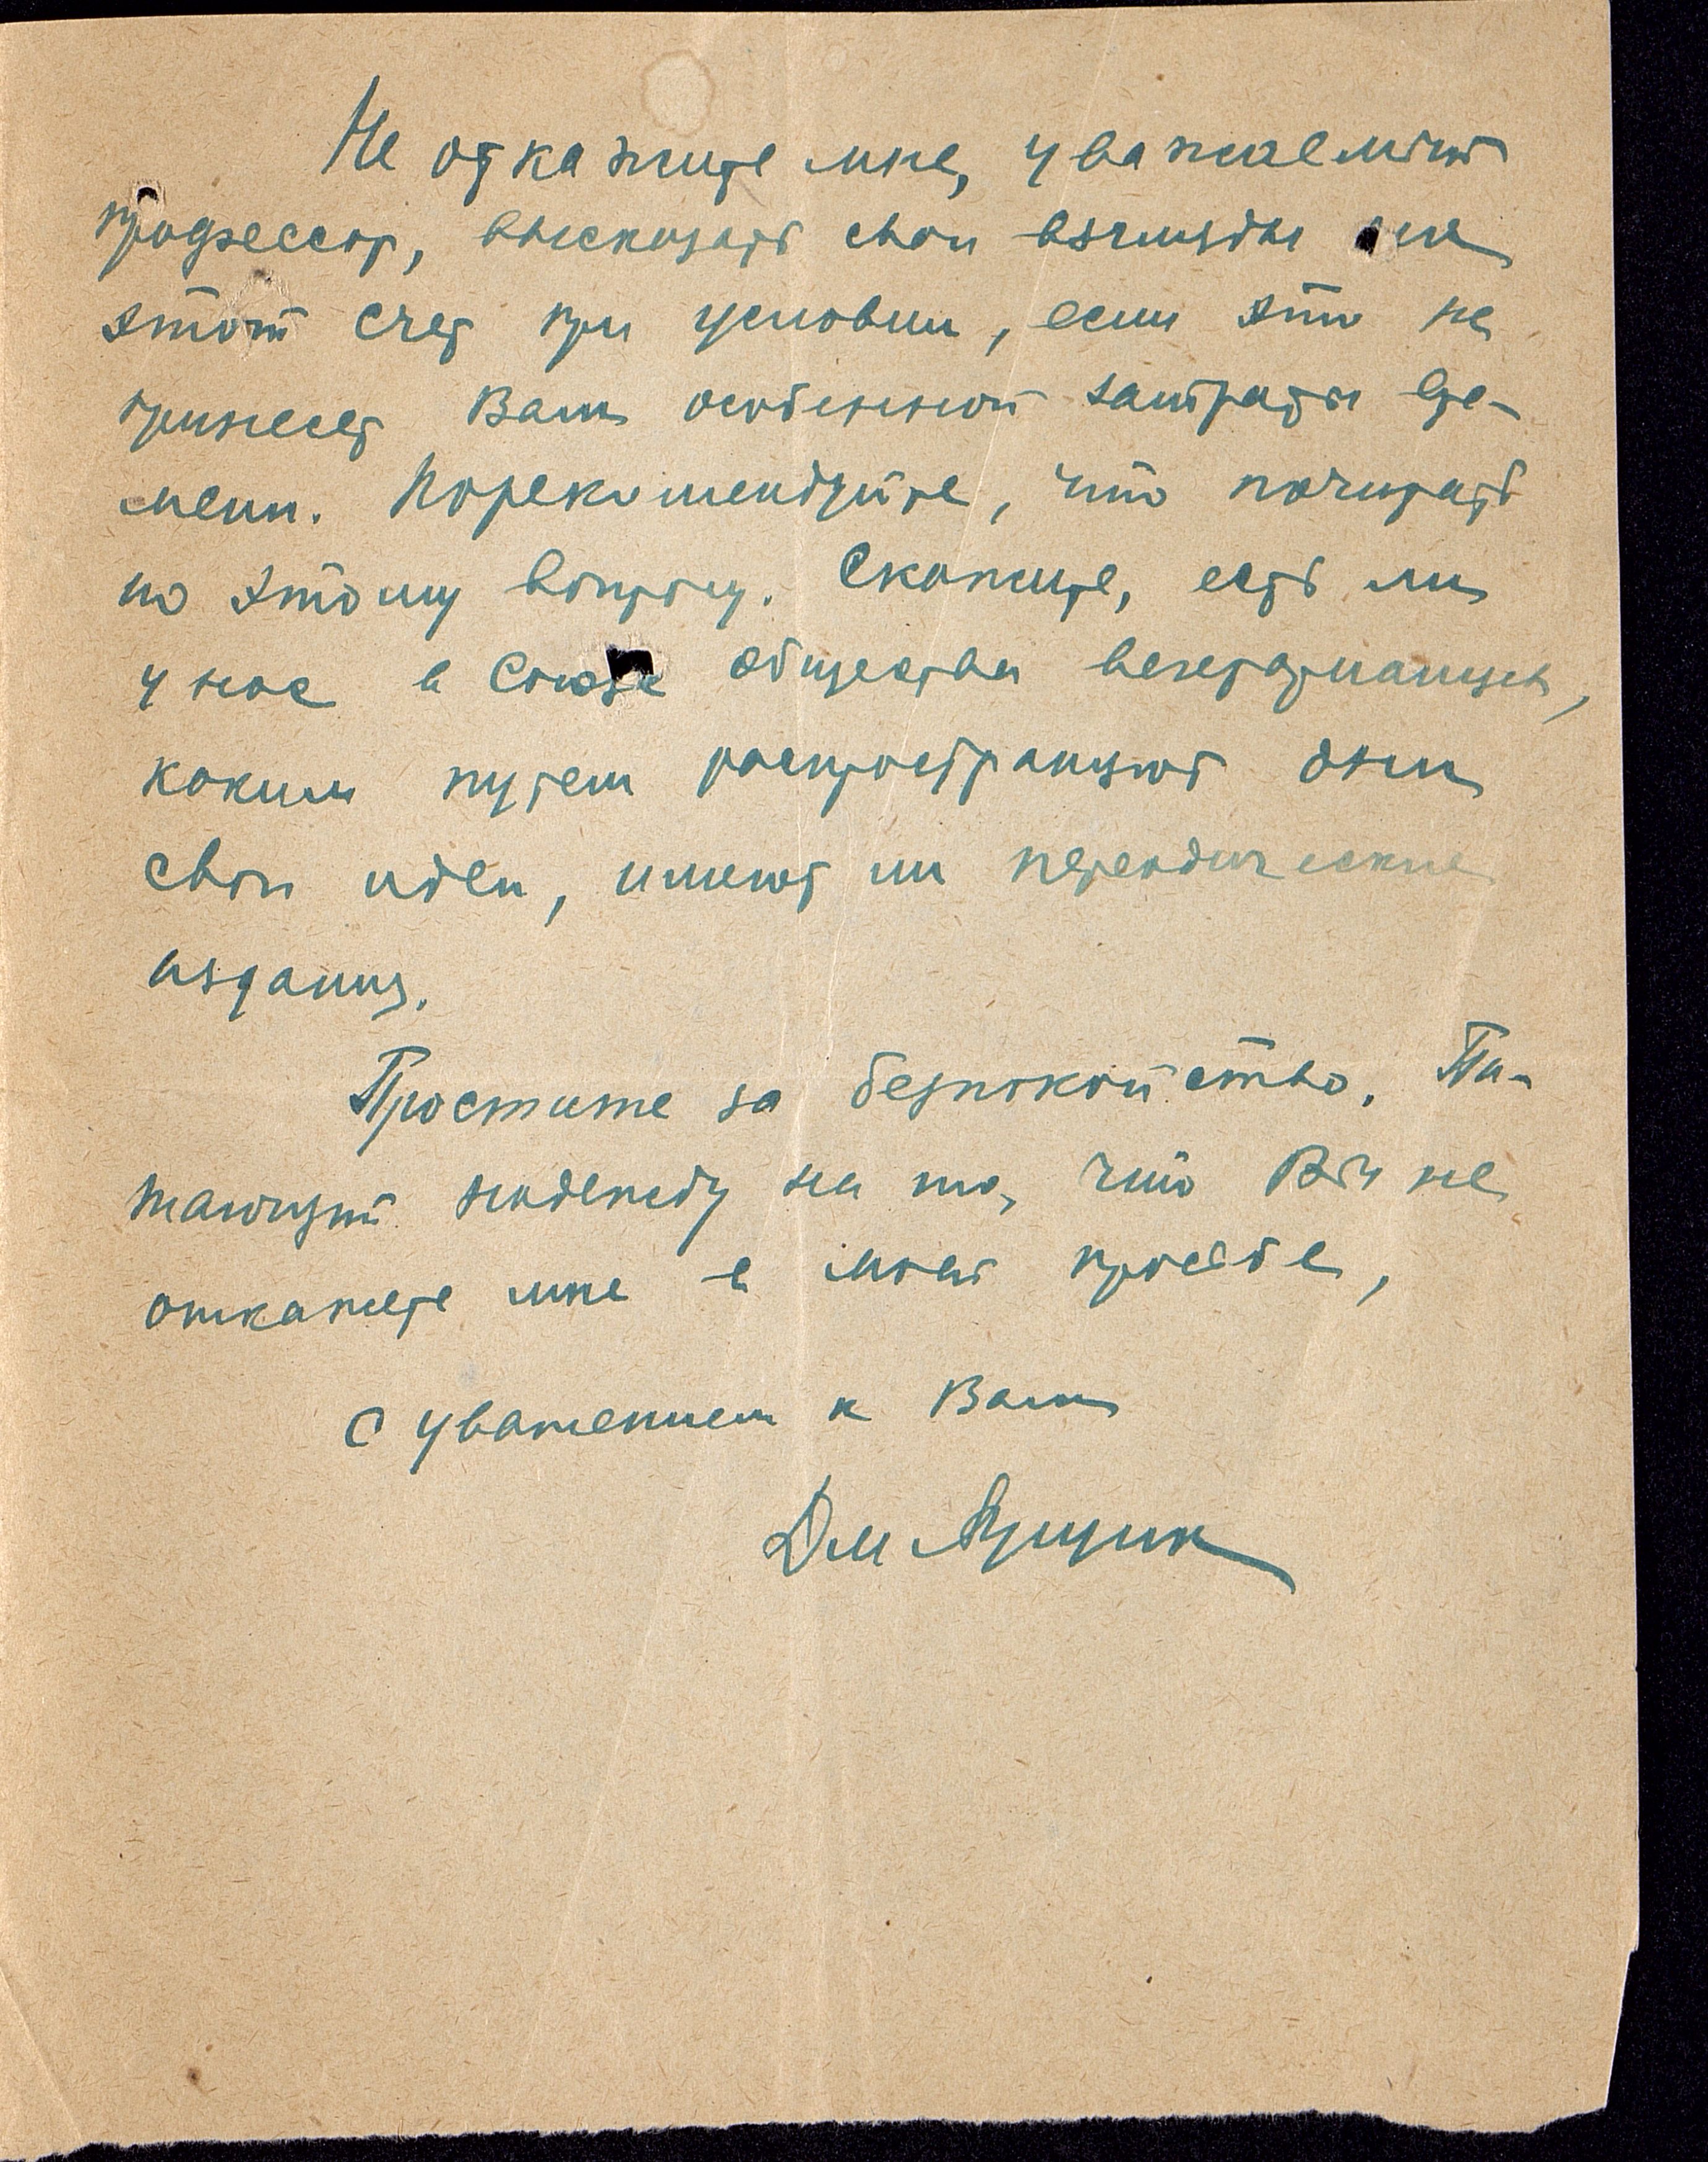 Не откажите мне, уважаемый
профессор, высказать свои взгляды на
этот счет при условии, если это не
принесет Вам особенной затраты вре-
мени. Порекомендуйте, что почитать
по этому вопросу. Скажите, есть ли
у нас в Союзе общества вегетарианцев,
каким путем распространяют они
свои идеи, имеют ли переодические
издания.
Простите за безпокойство. Пи-
тающий надежду на то, что Вы не
откажете мне в моей просьбе,
с уважением к Вам
Дм Ящик